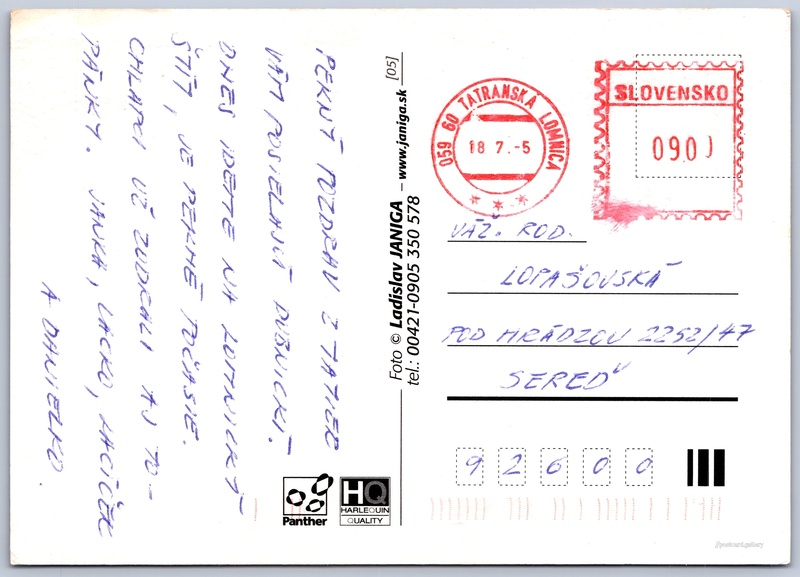 PEKNÝ POZDRAV Z TATIER
VÁM POSIELAJÚ DUBNICKÍ.
DNES IDEME NA LOMNICKÝ
ŠTÍT, JE PEKNÉ POČASIE.
CHLAPCI UŽ ZODRALI AJ TO-
PÁNKY. JANKA, LACKO, LACÍČEK
A DANIELKO.
Foto © Ladislav JANIGA – www.janiga.sk [05]
tel.: 00421-0905 350 578
059 60 TATRANSKÁ LOMNICA
18 7.-5
SLOVENSKO
090
VÁŽ. ROD.
LOPAŠOVSKÁ
POD HRÁDZOU 2252/47
SEREĎ
92600
Panther
HQ
HARLEQUIN
QUALITY